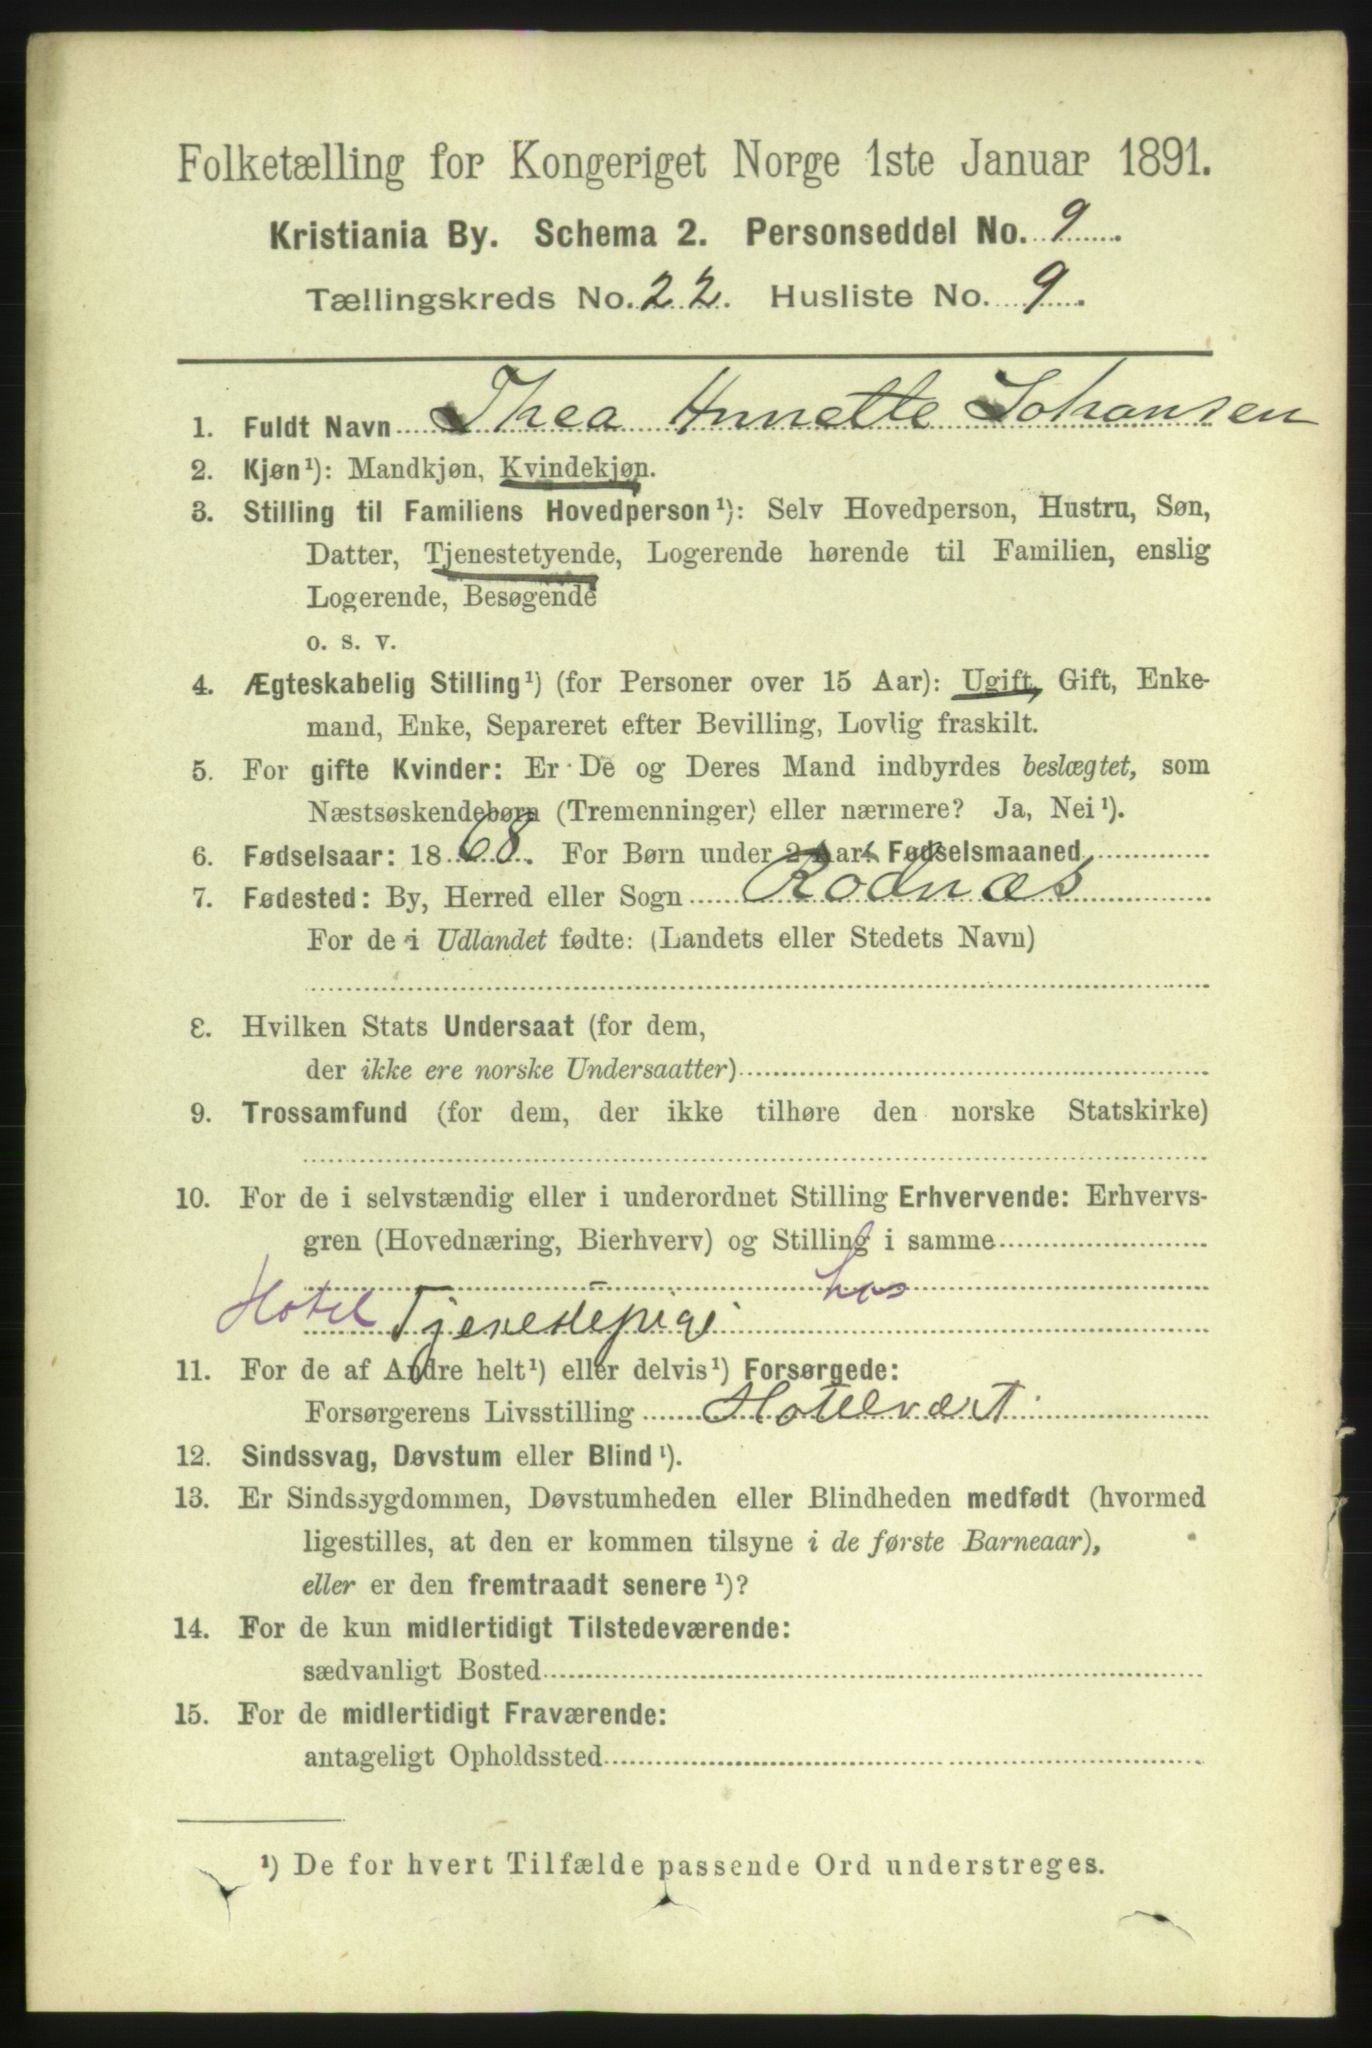 Folketælling for Kongeriget Norge 1ste Januar 1891.
Kristiania By. Schema 2. Personseddel No. 9.
Tællingskreds No. 22. Husliste No. 9.
1. Fuldt Navn Thea Annette Johansen
2. Kjøn¹): Mandkjøn, Kvindekjøn.
3. Stilling til Familiens Hovedperson¹): Selv Hovedperson, Hustru, Søn,
Datter, Tjenestetyende, Logerende hørende til Familien, enslig
Logerende, Besøgende
o. s. v.
4. Ægteskabelig Stilling¹) (for Personer over 15 Aar): Ugift, Gift, Enke-
mand, Enke, Separeret efter Bevilling, Lovlig fraskilt.
5. For gifte Kvinder: Er De og Deres Mand indbyrdes beslægtet, som
Næstsøskendebørn (Tremenninger) eller nærmere? Ja, Nei¹).
6. Fødselsaar: 1868. For Børn under 2 Aar: Fødselsmaaned
7. Fødested: By, Herred eller Sogn Rodnæs
For de i Udlandet fødte: (Landets eller Stedets Navn)
8. Hvilken Stats Undersaat (for dem,
der ikke ere norske Undersaatter)
9. Trossamfund (for dem, der ikke tilhøre den norske Statskirke)
10. For de i selvstændig eller i underordnet Stilling Erhvervende: Erhvervs-
gren (Hovednæring, Bierhverv) og Stilling i samme
Hotel Tjenestepige hos
11. For de af Andre helt¹) eller delvis¹) Forsørgede:
Forsørgerens Livsstilling Hotelvært
12. Sindssvag, Døvstum eller Blind¹).
13. Er Sindssygdommen, Døvstumheden eller Blindheden medfødt (hvormed
ligestilles, at den er kommen tilsyne i de første Barneaar),
eller er den fremtraadt senere¹)?
14. For de kun midlertidigt Tilstedeværende:
sædvanligt Bosted
15. For de midlertidigt Fraværende:
antageligt Opholdssted
¹) De for hvert Tilfælde passende Ord understreges.